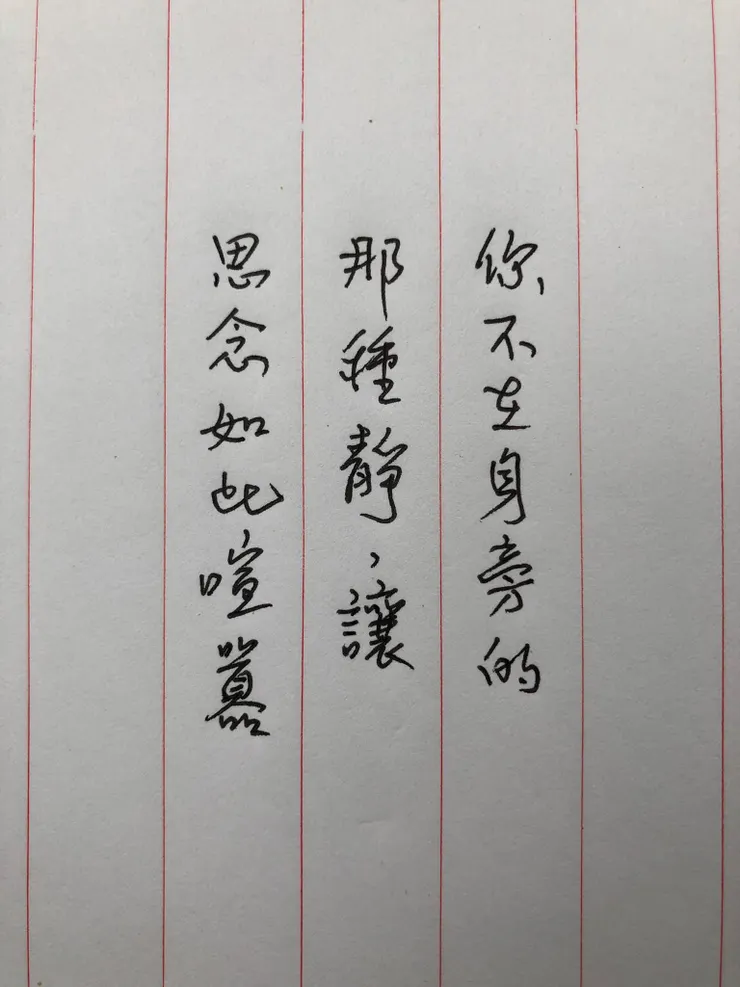 你不在身旁的
那種靜，讓
思念如此喧囂